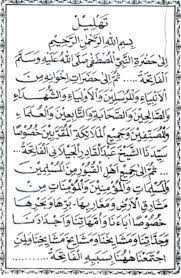 تَهْلِيْل
بِسْمِ اللهِ الرَّحْمٰنِ الرَّحِيْمِ
إِلَى حَضْرَةِ النَّبِيِّ الْمُصْطَفَى صَلَّى اللهُ عَلَيْهِ وَسَلَّمَ
الفَاتِحَةْ ... ثُمَّ إِلَى حَضَرَاتِ إِخْوَانِهِ مِنَ
الْأَنْبِيَاءِ وَالْمُرْسَلِيْنَ وَالْأَوْلِيَاءِ وَالشُّهَدَاءِ
وَالصَّالِحِيْنَ وَالصَّحَابَةِ وَالتَّابِعِيْنَ وَالْعُلَمَاءِ
وَالْمُصَنِّفِيْنَ وَجَمِيْعِ الْمَلَائِكَةِ الْمُقَرَّبِيْنَ خُصُوْصًا
سَيِّدَنَا الشَّيْخَ عَبْدَ الْقَادِرِ الْجَيْلَانِي الْفَاتِحَةْ ...
ثُمَّ إِلَى جَمِيْعِ أَهْلِ الْقُبُوْرِ مِنَ الْمُسْلِمِيْنَ
وَالْمُسْلِمَاتِ وَالْمُؤْمِنِيْنَ وَالْمُؤْمِنَاتِ مِنْ
مَشَارِقِ الْأَرْضِ وَمَغَارِبِهَا بَرِّهَا وَبَحْرِهَا
خُصُوْصًا آبَاءَنَا وَأُمَّهَاتِنَا وَأَجْدَادَنَا
وَجَدَّاتِنَا وَمَشَايِخَنَا وَمَشَايِخَ مَشَايِخِنَا وَلِمَنِ
اجْتَمَعْنَا هٰهُنَا بِسَبَبِهِ الْفَاتِحَةْ ...